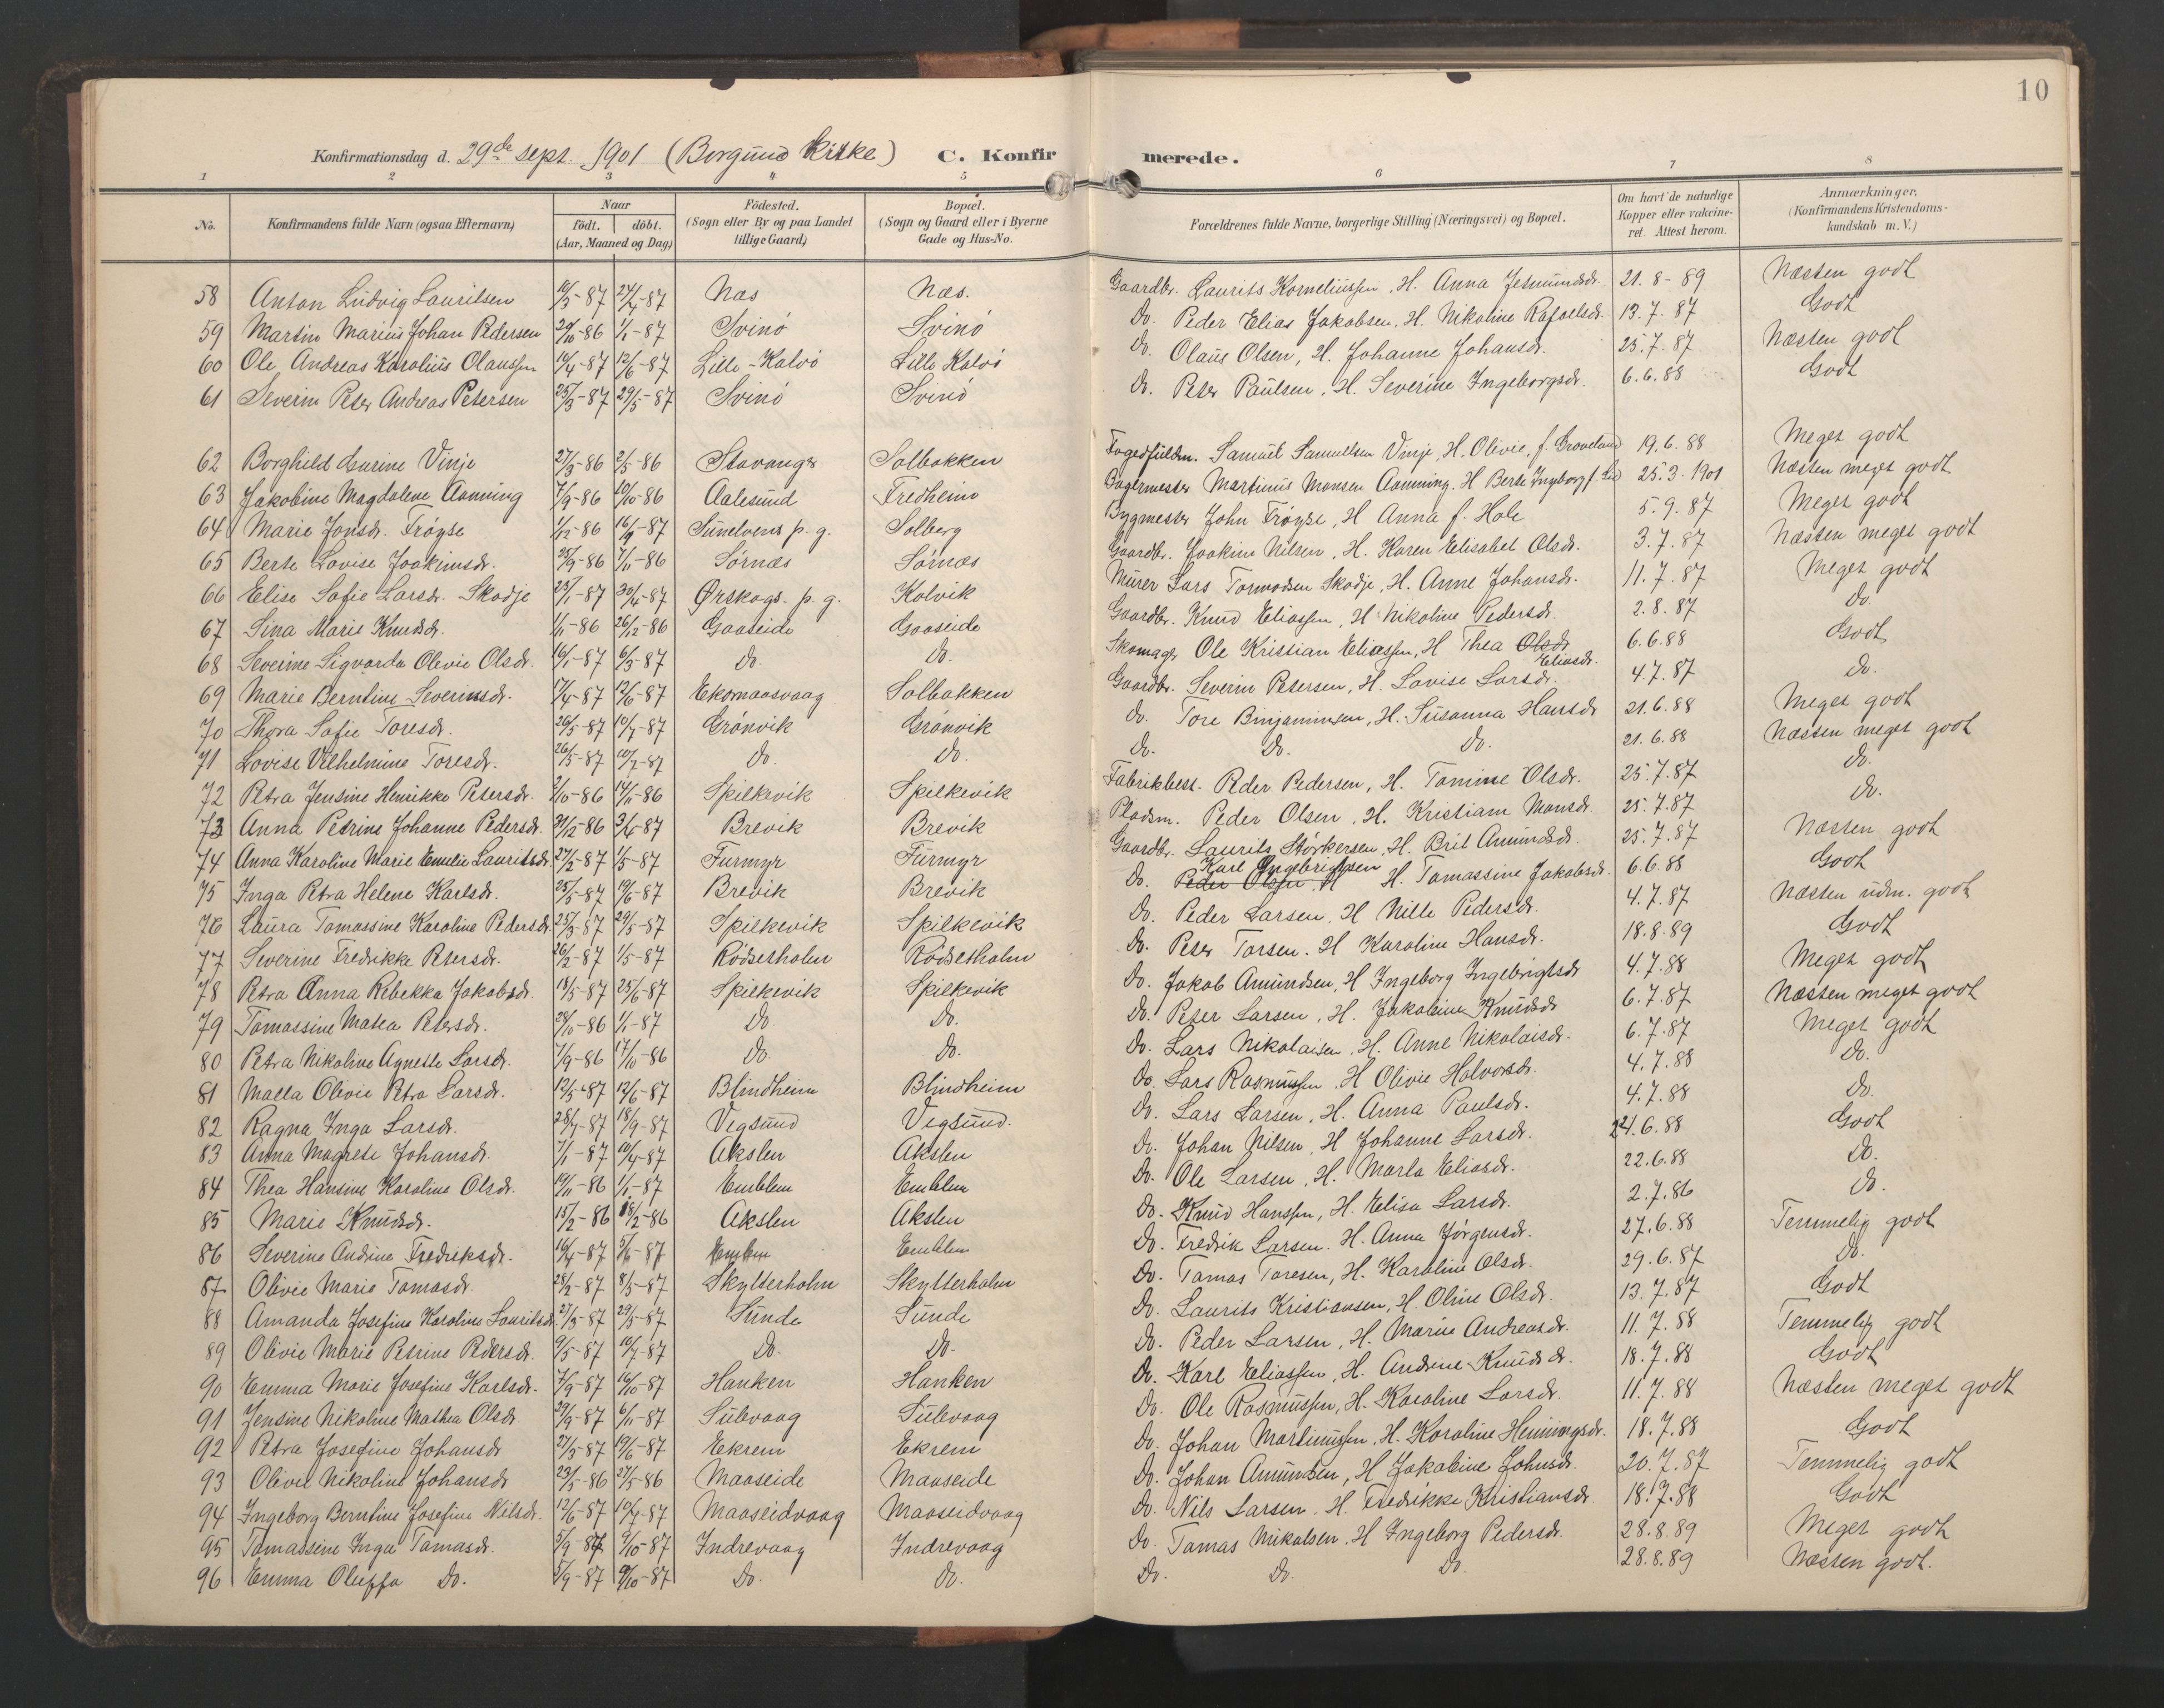 10
Konfirmationsdag d. 29de sept. 1901 (Borgund Kirke) C. Konfirmerede.
1 2 3 4 5 6 7 8
No. Konfirmandens fulde Navn (ogsaa Efternavn) Naar födt. döbt. (Aar, Maaned og Dag) Födested. (Sogn eller By og paa Landet tillige Gaard) Bopæl. (Sogn og Gaard eller i Byerne Gade og Hus-No. Forældrenes fulde Navne, borgerlige Stilling (Næringsvei) og Bopæl. Om havt de naturlige Kopper eller vakcineret. Attest herom. Anmærkninger, (Konfirmandens Kristendomskundskab m.V.)
58 Anton Ludvig Lauritsen 10/3-87 24/4-87 Næs Næs. Gaardbr. Laurits Korneliussen, H. Anna Jetmundsdr. 21.8-89 Næsten godt
59 Martin Marius Johan Pedersen 20/10-86 1/1-87 Svinö Svinö Do. Peder Elias Jakobsen, H. Nikoline Rafaelsdr. 13.7.87 Godt
60 Ole Andreas Karolius Olaussen 14/4-87 12/6-87 Lille-Kalvö Lille Kalvö Do. Olaus Olsen, H. Johanne Johansdr. 25.7.87 Næsten godt
61 Severin Peter Andreas Petersen 25/3-87 29/5-87 Svinö Svinö Do. Peter Paulsen, H. Severine Ingeborgsdr. 6.6.88 Godt
62 Borghild Laurine Vinje 27/3-86 2/5-86 Stavanger Solbakken Fogedfuldm. Samuel Samuelsen Vinje, H. Olivie, f. Graveland 19.6.88 Meget godt
63 Jakobine Magdalene Aanning 7/9-86 10/10-86 Aalesund Fredheim Bagermester Martinus Monsen Aanning. H Berte Ingeborg f. 25.3.1901 Næsten meget godt
64 Marie Jonsdr. Fröyse 1/12-86 16/9-87 Sunelvens p.g. Solberg Bygmester John Fröyse, H Anna f. Hole 5.9.87 Meget godt
65 Berte Lovise Joakimsdr. 25/9-86 7/11-86 Sörnæs Sörnæs Gaardbr. Joakim Nilsen, H. Karen Elisabet Olsdr. 3.7.87 Næsten meget godt
66 Elise Sofie Larsdr. Skodje 25/1-87 30/4-87 Ørskogs. p.g. Kolvik Murer Lars Tormodsen Skodje, H. Anne Johansdr. 11.7.87 Meget godt
67 Sina Marie Knudsdr. 1/11-86 26/12-86 Gaaseide Gaaseide Gaardbr. Knud Eliassen, H Nikoline Pedersdr. 2.8.87 Do.
68 Severine Sigvarda Olivie Olsdr. 16/1-87 6/3-87 Do. Do. Skomager Ole Kristian Eliassen, H Thea Olsdr Eliasdr. 6.6.88 Godt
69 Marie Berntine Severinsdr. 17/4-87 12/6-87 Ekornaasvaag Solbakken Gaardbr. Severin Petersen, H. Lovise Larsdr. 4.7.87 Do.
70 Thora Sofie Toresdr. 26/5-87 10/7-87 Grönvik Grönvik Do. Tore Binjaminsen, H. Susanna Hansdr 21.6.88 Meget godt
71 Lovise Vilhelmine Toresdr. 26/5-87 10/7-87 Do. Do. Do. Do. Do. 21.6.88 Næsten meget godt
72 Petra Jensine Henrikke Petersdr. 2/10-86 14/11-86 Spilkevik Spilkevik Fabrikbest. Peder Pedersen, H. Tomine Olsdr. 25.7.87 Do.
73 Anna Petrine Johanne Pedersdr. 31/12-86 3/6-87 Brevik Brevik Pladsm. Peder Olsen, H. Kristiam Monsdr. 25.7.87 Do.
74 Anna Karoline Marie Emelie Lauritsdr 27/2-87 1/5-87 Furmyr Furmyr Gaardbr. Laurits Störkersen, H. Brit Amundsdr 25.7.87 Næsten godt
75 Inga Petra Helene Karlsdr. 25/5-87 19/6-87 Brevik Brevik Do. Peder Olsen, H Karl Ingebrigtsen H. Tomassine Jakobsdr. 6.6.88 Godt
76 Laura Tomassine Karoline Pedersdr. 25/3-87 29/5-87 Spilkevik Spilkevik Do. Peder Larsen, H Nille Pedersdr. 4.7.87 Næsten udm. godt
77 Severine Fredrikke Petersdr. 26/2-87 1/5-87 Rödsetholm Rödsetholm Do. Peter Torsen. H Karoline Hansdr. 18.8.89 Godt
78 Petra Anna Rebekka Jakobsdr. 18/5-87 25/6-87 Spilkevik Spilkevik Do. Jakob Amundsen, H Ingeborg Ingebrigtsdr 4.7.88 Meget godt
79 Tomassine Matea Petersdr. 28/10-86 1/1-87 Do Do. Do. Peter Larsen, H. Jakobine Knudsdr 6.7.87 Næsten meget godt
80 Petra Nikoline Agnette Larsdr. 7/9-86 17/10-86 Do. Do. Do. Lars Nikolaisen, H. Anne Nikolaisdr. 6.7.87 Meget godt
81 Malla Olivie Petra Larsdr. 12/5-87 12/6-87 Blindheim Blindheim Do. Lars Rasmussen, H Olivie Halvorsdr. 4.7.88 Do.
82 Ragna Inga Larsdr. 28/7-87 18/9-87 Vegsund Vegsund. Do. Lars Larsen, H. Anna Paulsdr. 4.7.88 Do.
83 Anna Magrete Johansdr. 7/1-87 10/4-87 Akslen Akslen Do. Johan Nilsen, H Johanne Larsdr. 24.6.88 Godt
84 Thea Hansine Karoline Olsdr. 19/11-86 1/1-87 Emblem Emblem Do. Ole Larsen, H. Marta Eliasdr. 22.6.88 Do.
85 Marie Knudsdr. 15/2-86 18/2-86 Akslen Akslen Do. Knud Hanssen, H. Elisa Larsdr. 2.7.86 Do.
86 Severine Andrine Fredreksdr. 16/4-87 5/6-87 Emblem Emblem Do. Fredrik Larsen. H. Anna Jörgensdr. 27.6.88 Temmelig godt
87 Olivie Marie Tomasdr. 28/2-87 8/5-87 Skytterholm Skytterholm Do. Tomas Toresen, H. Karoline Olsdr. 29.6.87 Do.
88 Amanda Josefine Karoline Lauritsdr. 27/3-87 29/5-87 Sunde Sunde Do. Laurits Kristiansen, H. Oline Olsdr. 13.7.87 Godt
89 Olivie Marie Petrine Pedersdr. 9/5-87 10/7-87 Do. Do. Do. Peder Larsen, H. Marie Andreasdr. 11.7.88 Temmelig godt
90 Emma Marie Josefine Karlsdr. 7/9-87 16/10-87 Hanken Hanken Do. Karl Eliassen, H. Andrine Knudsdr. 18.7.88 Godt
91 Jensine Nikoline Mathea Olsdr. 29/9-87 6/11-87 Sulevaag Sulevaag Do. Ole Rasmussen, H. Karoline Larsdr. 11.7.88 Næsten meget godt
92 Petra Josefine Johansdr 27/3-87 19/6-87 Ekrem Ekrem Do. Johan Martinussen, H. Karoline Henningsdr. 18.7.88 Godt
93 Olivie Nikoline Johansdr 23/5-86 27/5-86 Maaseide Maaseide Do. Johan Amundsen, H Jakobine Johnsdr. 20.7.87 Temmelig godt
94 Ingeborg Berntine Josefine Nilsdr. 12/6-87 10/7-87 Maaseidvaag Maaseidvaag Do. Nils Larsen. H. Fredrikke Kristiansdr 18.7.88 Godt
95 Tomassine Inga Tomasdr. 5/9-87 9/10-87 Indrevaag Indrevaag Do. Tomas Mikalsen. H Ingeborg Pedersdr. 28.8.89 Meget godt
96 Emma Oluffa Do. 5/9-87 9/10-87 Do. Do. Do. Do. Do. 28.8.89 Næsten godt.